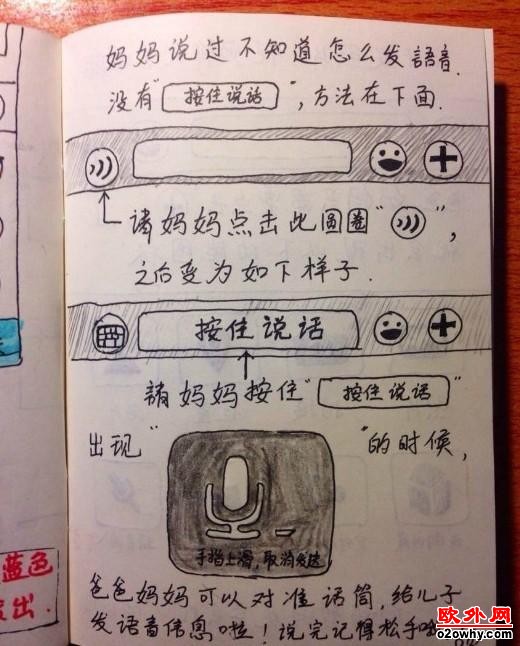 妈妈说过不知道怎么发語音.
没有"按住说话",方法在下面.
请妈妈点击此圆圈" ",
之后变为如下样子.
按住说话
請妈妈按住"按住说话"
出现" "的时候,
手指上滑,取消发送
爸爸妈妈可以对准话筒,给儿子
发语音信息啦!说完记得松手
蓝色
出.
欧外网
o2owhy.com